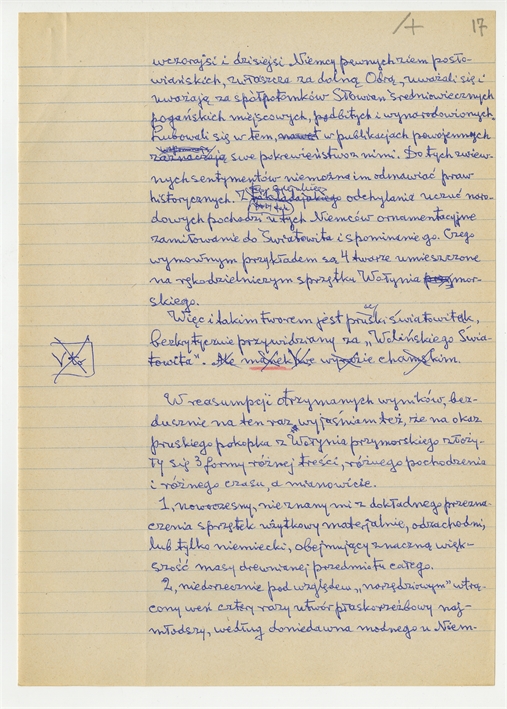 17
wczorajsi i dzisiejsi Niemcy pewnych ziem posło-
wiańskich, zwłaszcza za dolną Odrą, uważali się i
uważają za spółpotomków Słowian średniowiecznych
pogańskich miejscowych, podbitych i wynarodowionych.
Lubowali się w tem, nawet w publikacjach powojennych
zaznaczają swe pokrewieństwo z nimi. Do tych zwiew-
nych sentymentów nie można im odmawiać praw
historycznych. Z odchylania uczuć naro-
dowych pochodzi u tych Niemców ornamentacyjne
zamiłowanie do Światowita i spominanie go. Czego
wymownym przykładem są 4 twarze umieszczone
na rękodzielniczym sprzętku Wolynia przymor-
skiego.
Więc i takim tworem jest pruski światowitek,
bezkrytycznie przywidziany za „Wolińskiego Świa-
towita". Ale chamskim.
W reasumpcji otrzymanych wyników, bez-
dusznie na ten raz, wyjaśniam też, że na okaz
pruskiego pokopka z Wolynia przymorskiego złoży-
ły się 3 formy różnej treści, różnego pochodzenia
i różnego czasu, a mianowicie.
1, nowoczesny, nie znany mi z dokładnego przezna-
czenia sprzętek użytkowy materjalnie, odzachodni,
lub tylko niemiecki, obejmujący znaczną więk-
szość masy drewnianej przedmiotu całego.
2, niedorzecznie pod względem „narzędziowym" wtrą-
cony weń cztery razy utwór płaskorzeźbowy naj-
młodszy, według doniedawna modnego u Niem-